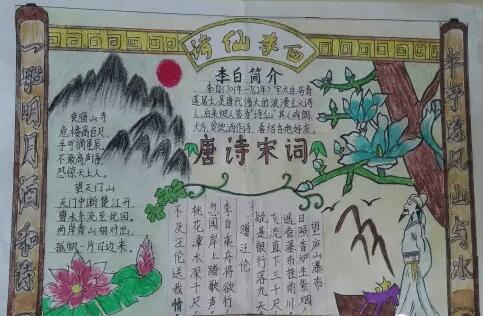 诗仙李白
一壶明月酒和诗
半亭清风山与水
李白简介
李白(701年—762年),字太白,号青
莲居士,是唐代伟大的浪漫主义诗
人,后来被人誉为"诗仙"其人爽朗
大方,爱饮酒作诗,喜结合也好友。
唐诗宋词
夜宿山寺
危楼高百尺,
手可摘星辰,
不敢高声语,
恐惊天上人。
望天门山
天门中断楚江开,
碧水东流至此回。
两岸青山相对出,
孤帆一片日边来。
望庐山瀑布
日照香炉生紫烟,
遥看瀑布挂前川。
飞流直下三千尺,
疑是银河落九天。
赠汪伦
李白乘舟将欲行,
忽闻岸上踏歌声。
桃花潭水深千尺,
不及汪伦送我情。